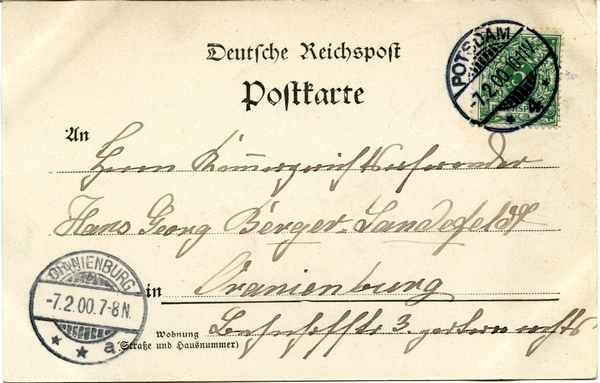 Deutsche Reichspost
Postkarte
POTSDAM
-7.2.00.10-11V.
* 4 *
An
Herrn Kammergerichtsreferendar
Hans Georg Berger-Landefeldt
in Oranienburg
Wohnung
(Straße und Hausnummer)
Bahnhofstr 3. rechts
ORANIENBURG
-7.2.00.7-8N.
* * a.